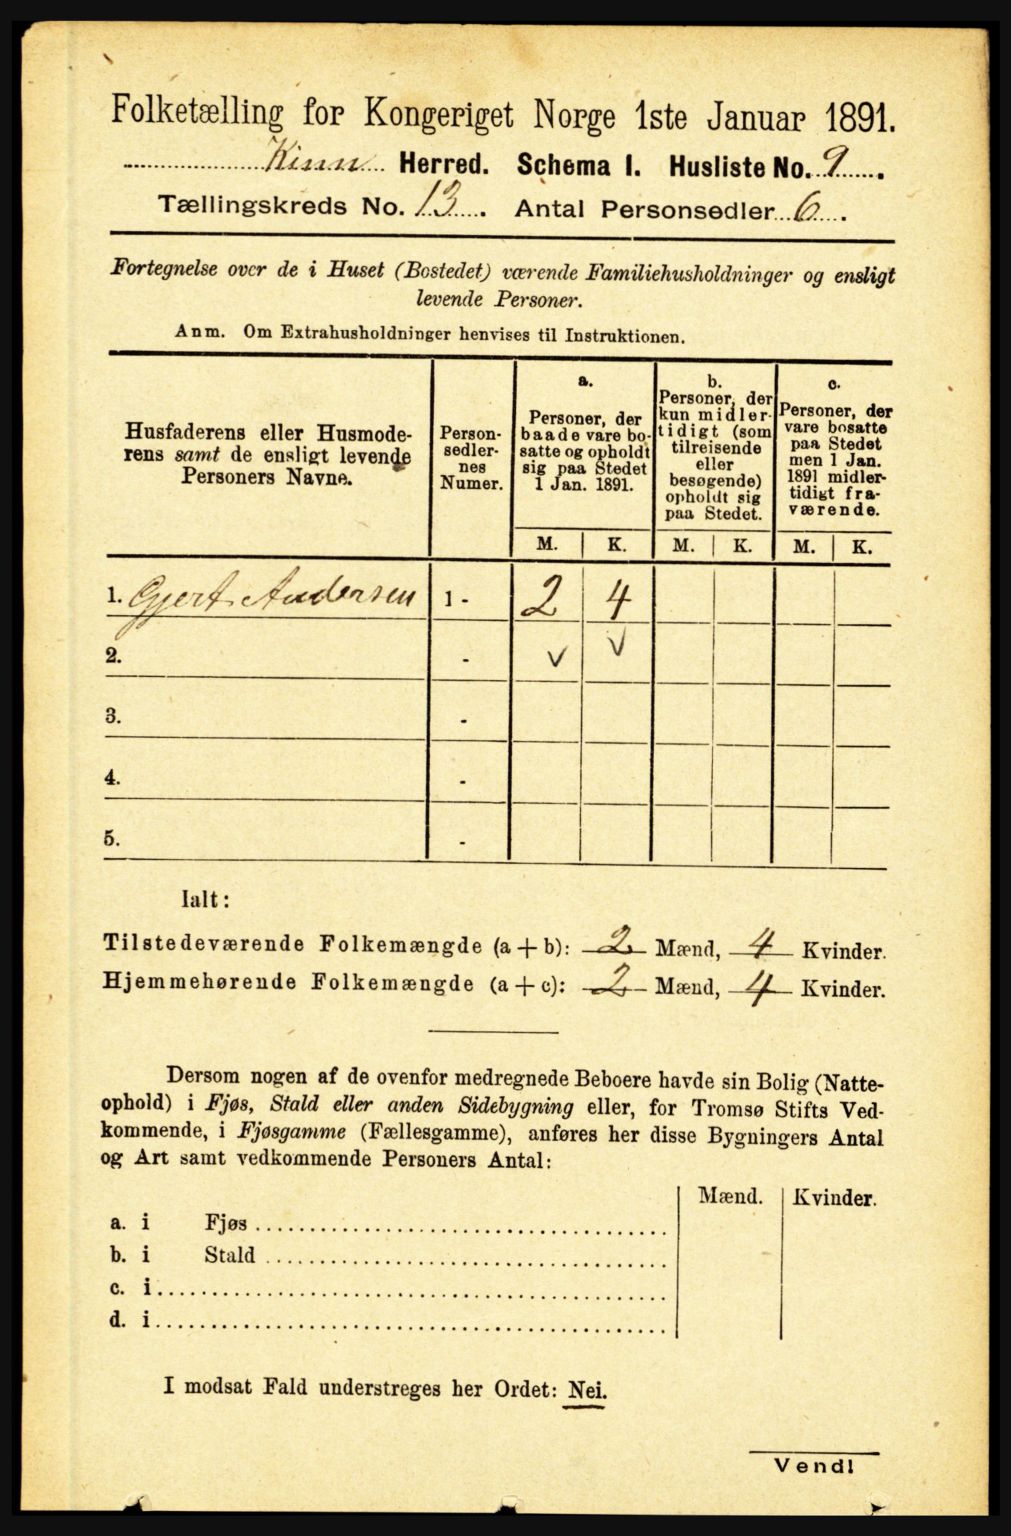 Folketælling for Kongeriget Norge 1ste Januar 1891.
Kinn Herred. Schema I. Husliste No. 9.
Tællingskreds No. 13. Antal Personsedler 6.
Fortegnelse over de i Huset (Bostedet) værende Familiehusholdninger og ensligt
levende Personer.
Anm. Om Extrahusholdninger henvises til Instruktionen.
Husfaderens eller Husmode-
rens samt de ensligt levende
Personers Navne.
Person-
sedler-
nes
Numer.
a.
Personer, der
baade vare bo-
satte og opholdt
sig paa Stedet
1 Jan. 1891.
b.
Personer, der
kun midler-
tidigt (som
tilreisende
eller
besøgende)
opholdt sig
paa Stedet.
c.
Personer, der
vare bosatte
paa Stedet
men 1 Jan.
1891 midler-
tidigt fra-
værende.
M. K. M. K. M. K.
1. Gjert Andersen 1 - 2 4
2. - v v
3. -
4. -
5. -
Ialt:
Tilstedeværende Folkemængde (a + b): 2 Mænd, 4 Kvinder.
Hjemmehørende Folkemængde (a + c): 2 Mænd, 4 Kvinder.
Dersom nogen af de ovenfor medregnede Beboere havde sin Bolig (Natte-
ophold) i Fjøs, Stald eller anden Sidebygning eller, for Tromsø Stifts Ved-
kommende, i Fjøsgamme (Fællesgamme), anføres her disse Bygningers Antal
og Art samt vedkommende Personers Antal:
Mænd. Kvinder.
a. i Fjøs
b. i Stald
c. i
d. i
I modsat Fald understreges her Ordet: Nei.
Vend!